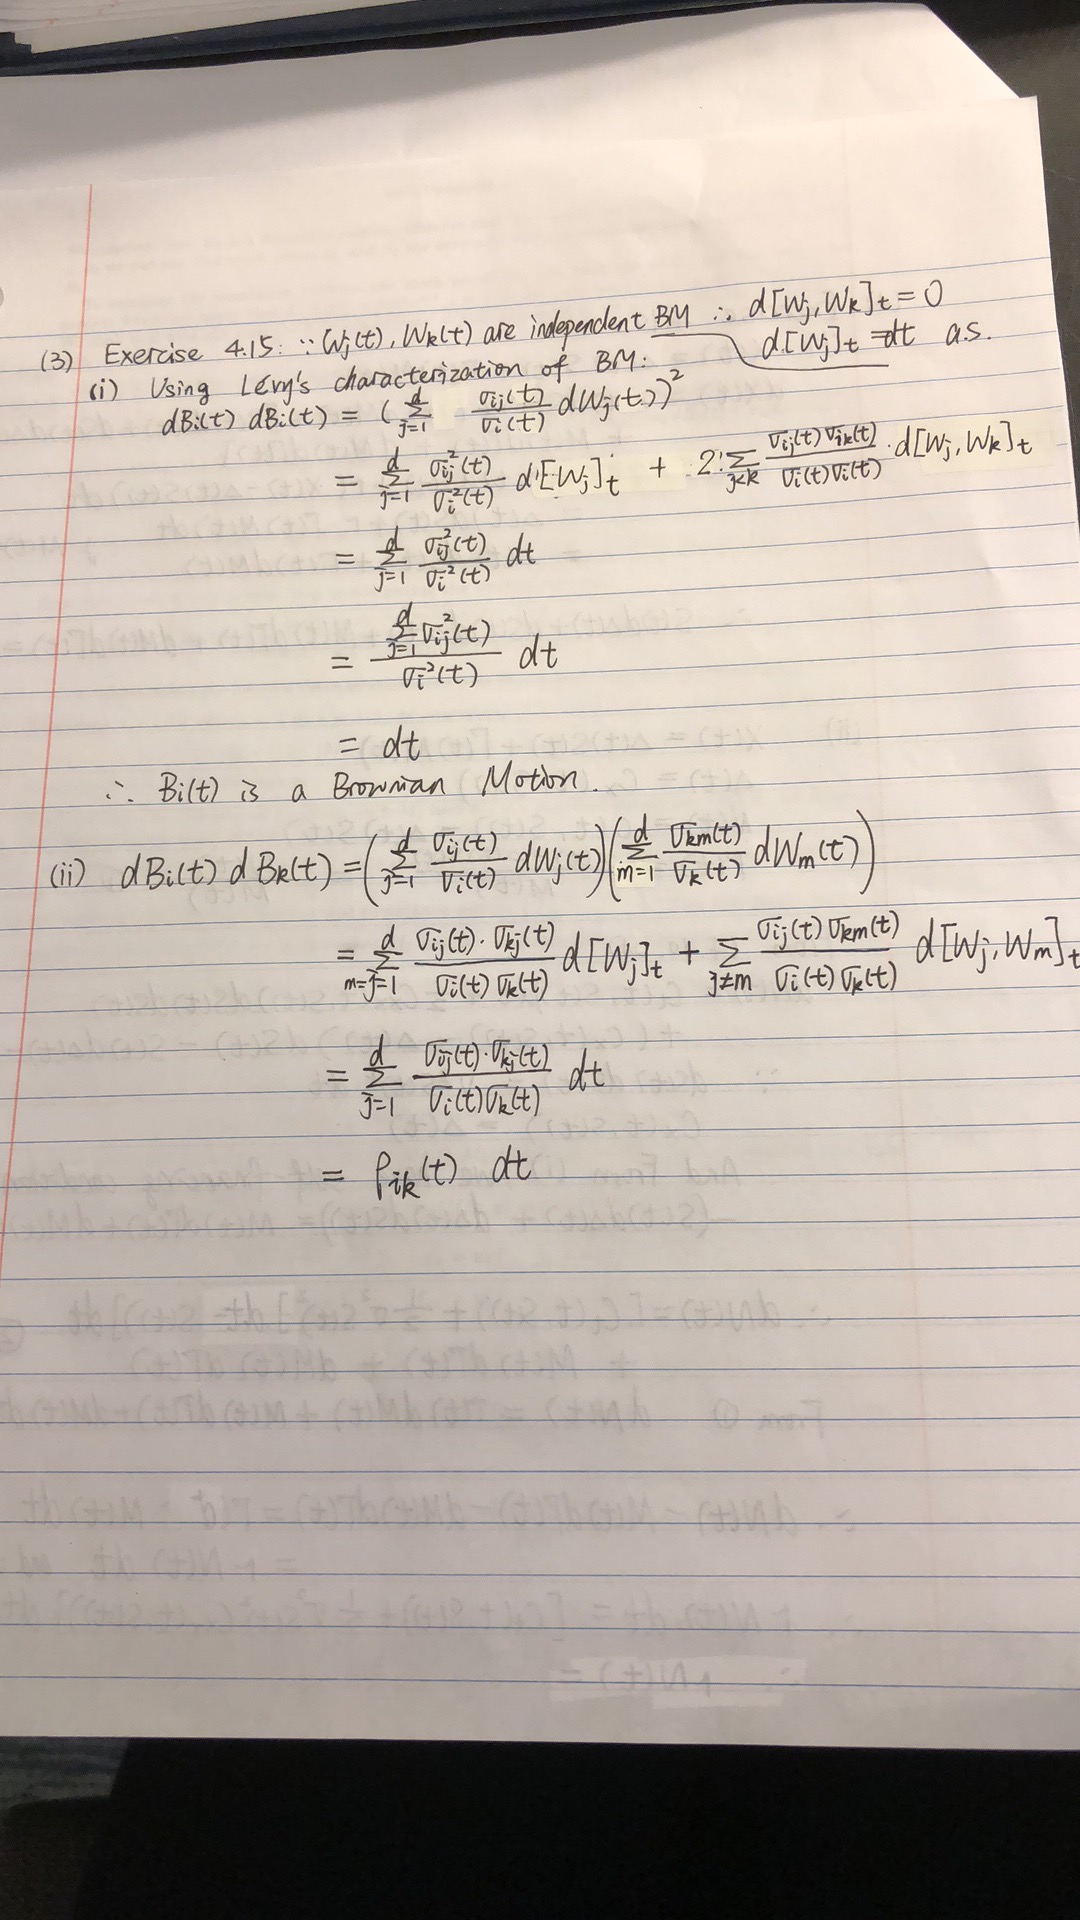 (3) Exercise 4.15: ∵ Wj(t), Wk(t) are independent BM ∴ d[Wj, Wk]t = 0
d[Wj]t = dt a.s.
(i) Using Lévy's characterization of BM:
dBi(t) dBi(t) = (∑_{j=1}^{d} σij(t)/σi(t) dWj(t))²
= ∑_{j=1}^{d} σij²(t)/σi²(t) d[Wj]t + 2·∑_{j<k} σij(t)σik(t)/σi(t)σi(t) · d[Wj, Wk]t
= ∑_{j=1}^{d} σij²(t)/σi²(t) dt
= ∑_{j=1}^{d} σij²(t) / σi²(t) dt
= dt
∴ Bi(t) is a Brownian Motion.
(ii) dBi(t) dBk(t) = (∑_{j=1}^{d} σij(t)/σi(t) dWj(t))(∑_{m=1}^{d} σkm(t)/σk(t) dWm(t))
= ∑_{m=j=1}^{d} σij(t)·σkj(t)/σi(t)σk(t) d[Wj]t + ∑_{j≠m} σij(t)σkm(t)/σi(t)σk(t) d[Wj, Wm]t
= ∑_{j=1}^{d} σij(t)·σkj(t)/σi(t)σk(t) dt
= ρik(t) dt